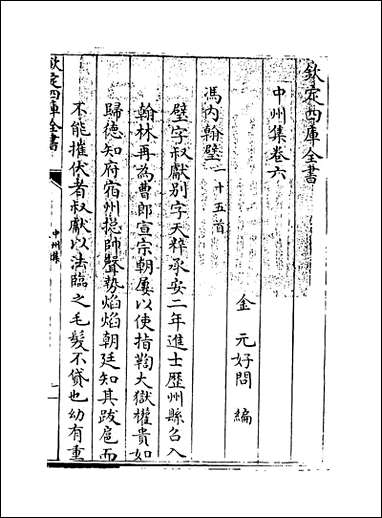 欽定四庫全書
中州集卷六
金 元好問 編
馮内翰璧二十五首
璧字叔獻别字天粹承安二年進士歴州縣召入
翰林再為曹郎宣宗朝屢以使指鞫大獄權貴如
歸德知府宿州捴帥聲勢焰焰朝廷知其跋扈而
不能摧伏者叔獻以法臨之毛髮不貸也幼有重
欽定四庫全書
中州集